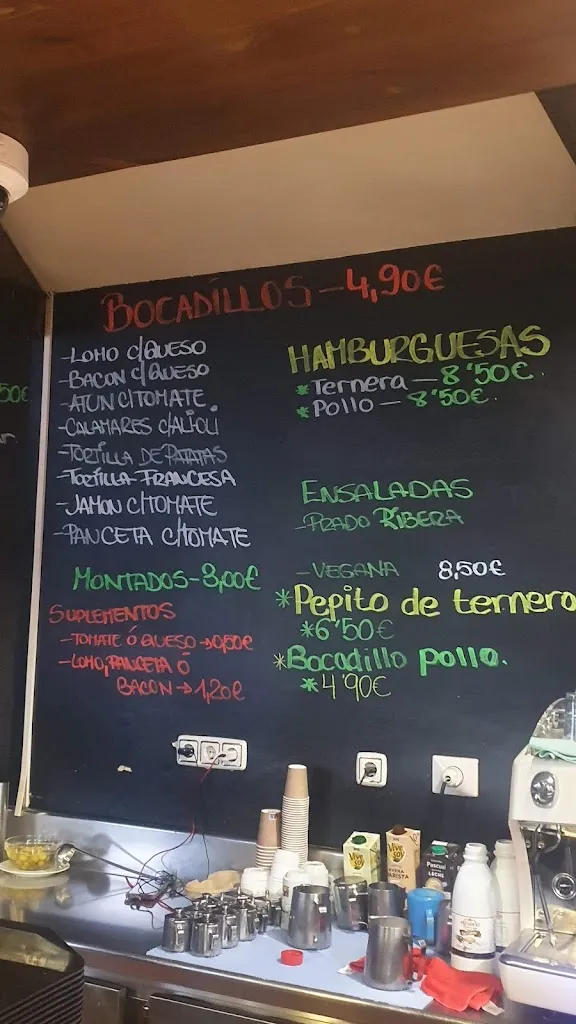 BOCADILLOS - 4,90€
- LOMO C/QUESO
- BACON C/QUESO
- ATUN C/TOMATE
- CALAMARES C/ALIOLI
- TORTILLA DE PATATAS
- TORTILLA FRANCESA
- JAMON C/TOMATE
- PANCETA C/TOMATE
MONTADOS - 3,00€
SUPLEMENTOS
- TOMATE Ó QUESO → 0,50€
- LOMO, PANCETA Ó
BACON → 1,20€
HAMBURGUESAS
* Ternera — 8'50€
* Pollo — 8'50€
ENSALADAS
- PRADO RIBERA
- VEGANA 8,50€
* Pepito de ternera
* 6'50€
* Bocadillo pollo.
* 4'90€
50€
ViveSoy
ViveSoy
Pascual
LECHE